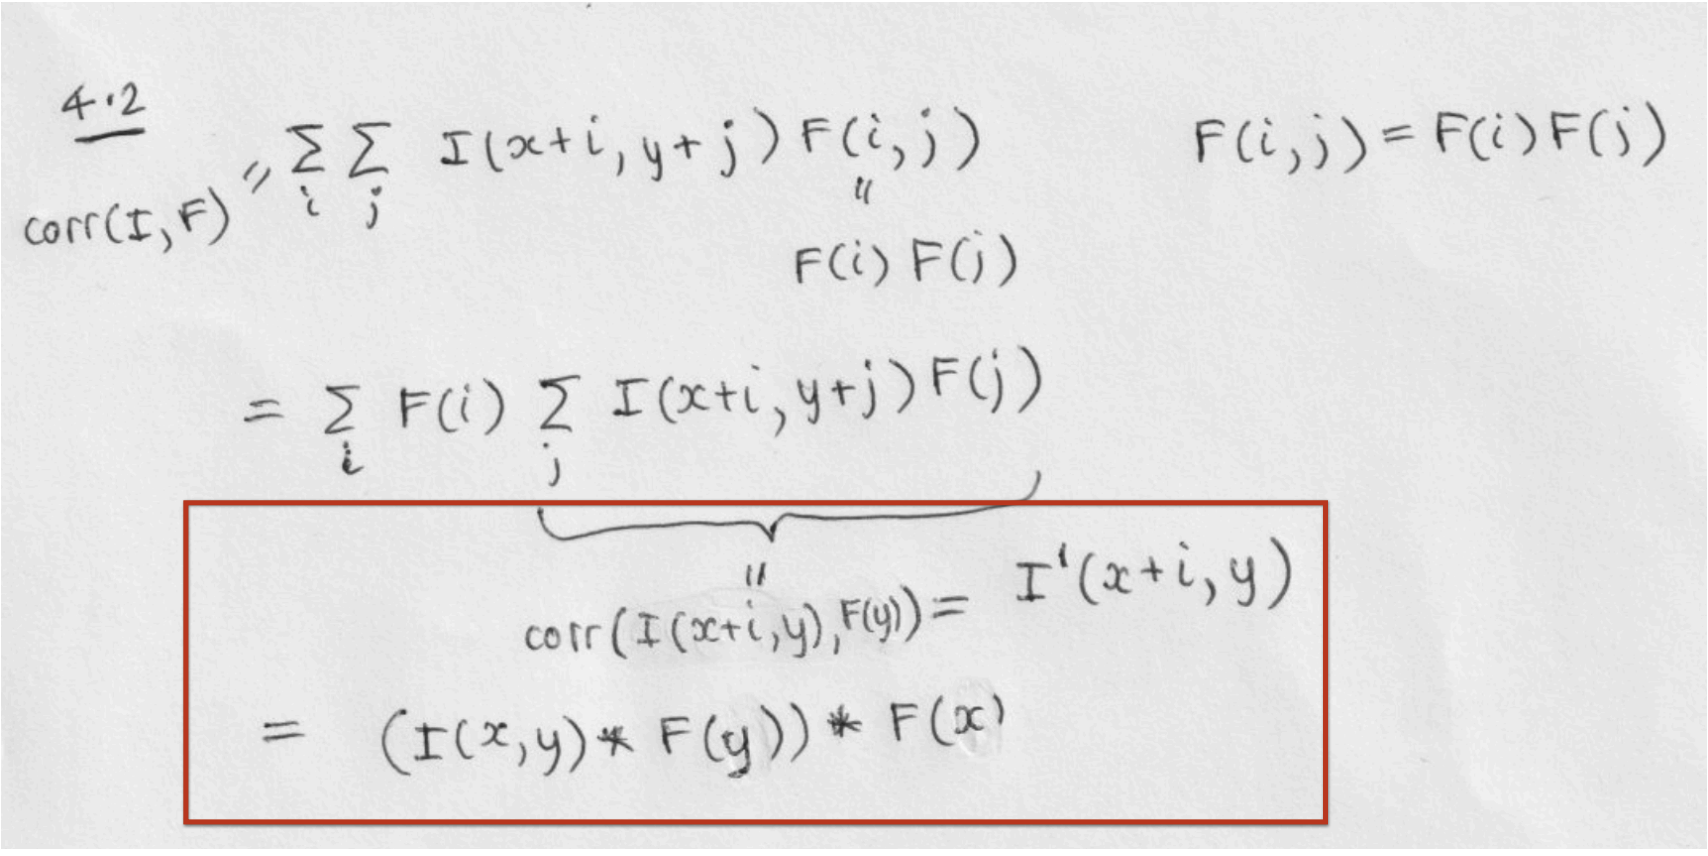 4.2
corr(I,F) = Σ_i Σ_j I(x+i, y+j) F(i,j)    F(i,j) = F(i)F(j)
"
F(i) F(j)
= Σ_i F(i) Σ_j I(x+i, y+j) F(j)
"
corr(I(x+i,y), F(y)) = I'(x+i, y)
= (I(x,y) * F(y)) * F(x)